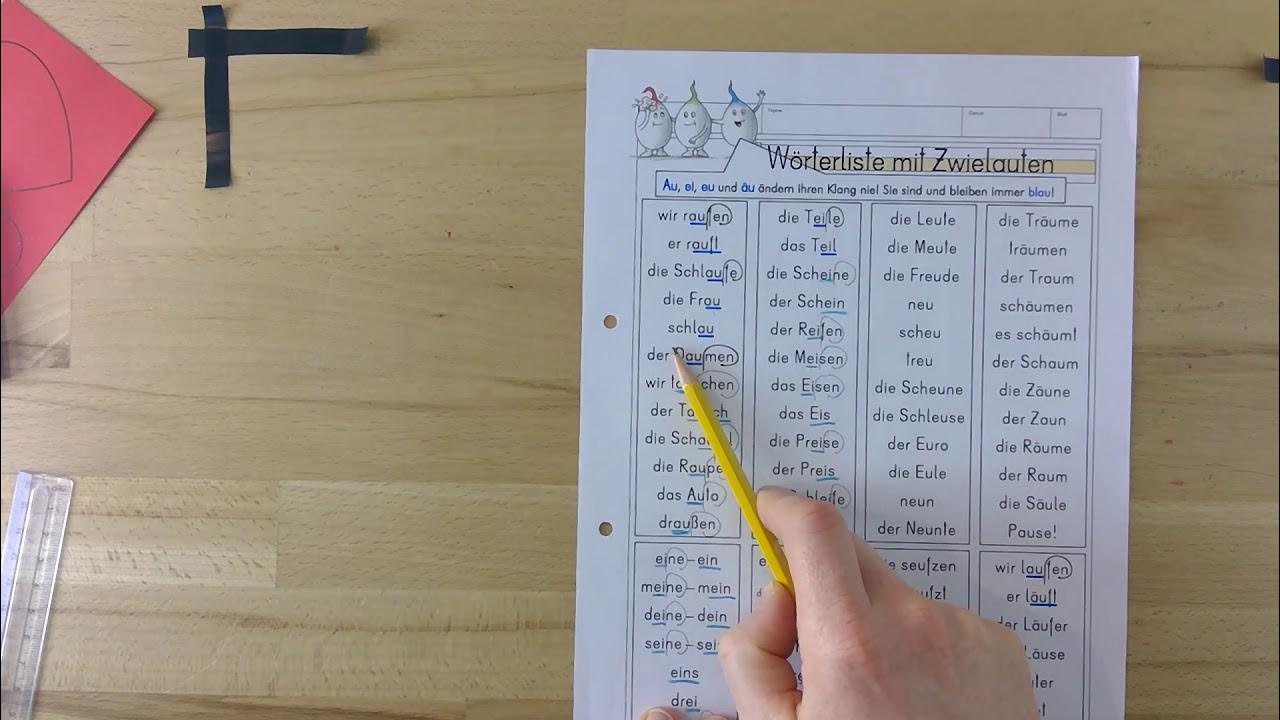 Name Datum Blatt
Wörterliste mit Zwielauten
Au, ei, eu und äu ändern ihren Klang nie! Sie sind und bleiben immer blau!
wir raufen
er rauft
die Schlaufe
die Frau
schlau
der Daumen
wir
der
die
die Raupe
das Auto
draußen
die Teile
das Teil
die Scheine
der Schein
der Reifen
die Meisen
das Eisen
das Eis
die Preise
der Preis
Schleife
die Leute
die Meute
die Freude
neu
scheu
treu
die Scheune
die Schleuse
der Euro
die Eule
neun
der Neunte
die Träume
träumen
der Traum
schäumen
es schäumt
der Schaum
die Zäune
der Zaun
die Räume
der Raum
die Säule
Pause!
eine – ein
meine – mein
deine – dein
seine –
eins
drei
seufzen
wir laufen
er läuft
der Läufer